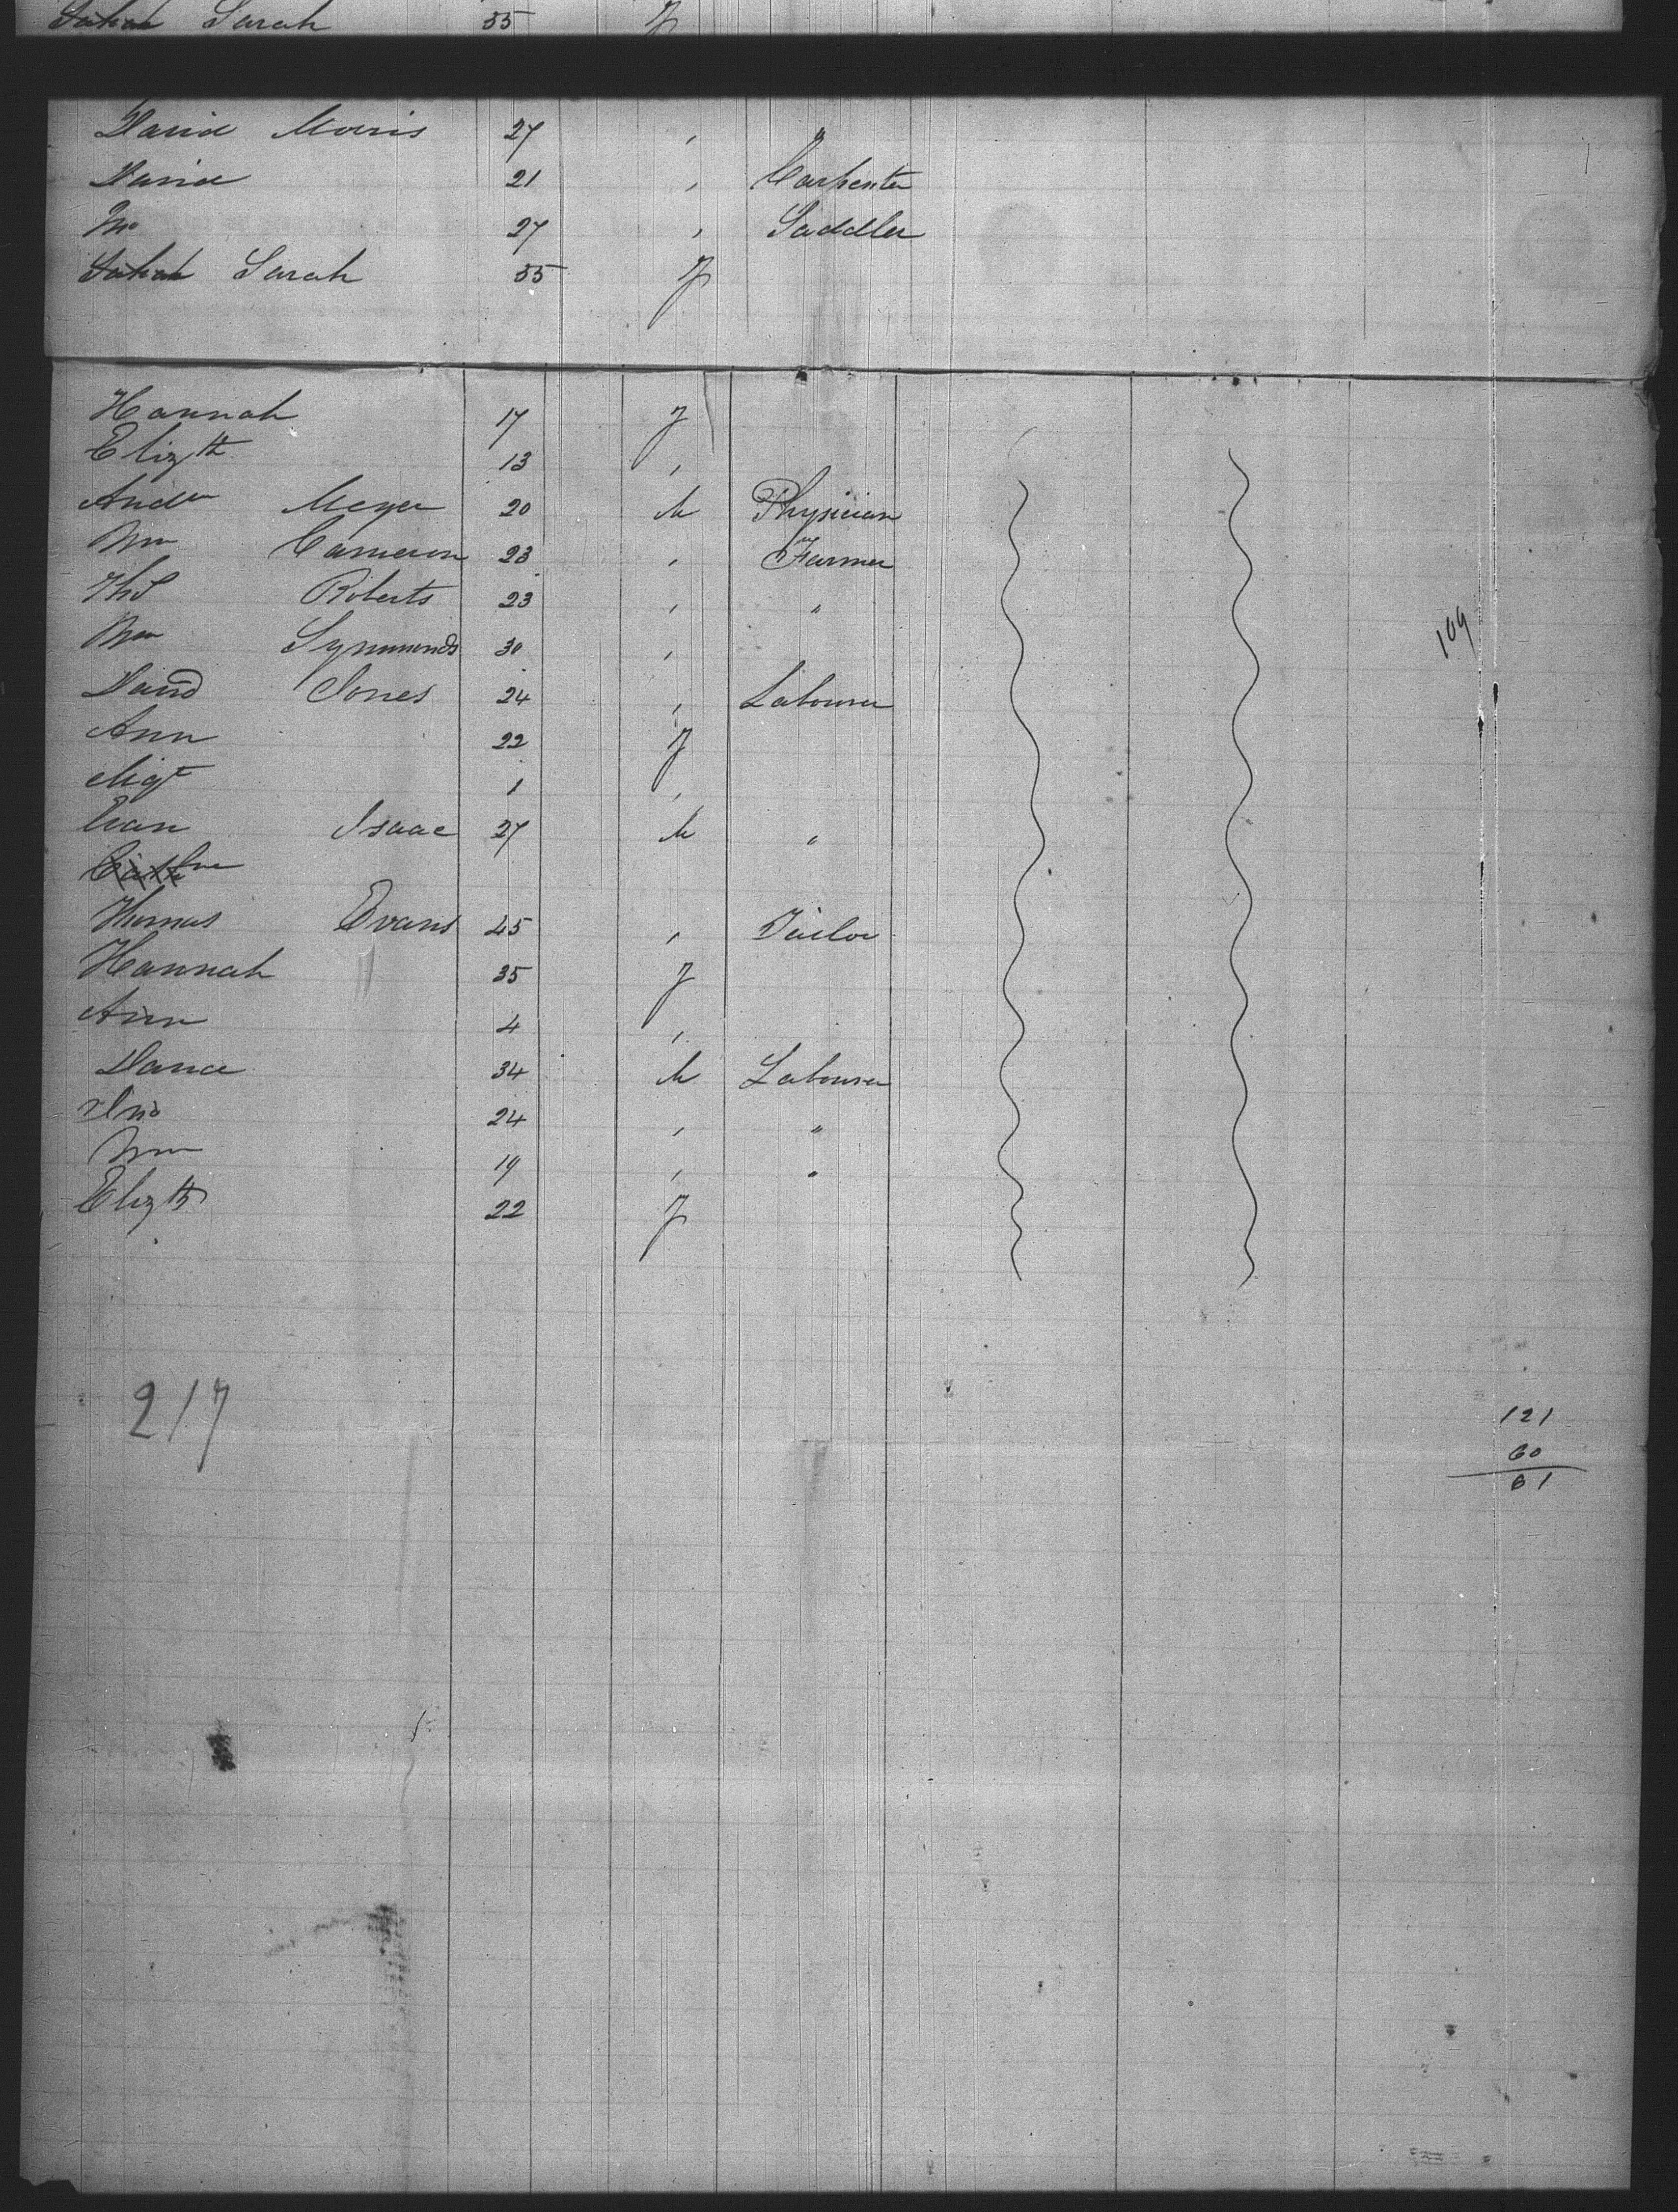 Sarah 55 F
David Morris 27 , "
David 21 , Carpenter
Wm 27 , Saddler
Sarah 55 F
Hannah 17 F
Elizth 13 ,
Andw Meyer 20 M Physician
Wm Cameron 23 , Farmer
Thos Roberts 23 , "
Wm Symmonds 30 ,
David Jones 24 , Labourer
Ann 22 F
Migt 1 ,
Evan Isaac 27 M "
Thomas Evans 45 , Tailor
Hannah 35 F
Ann 4 ,
David 34 M Labourer
Jno 24 , "
Wm 19 , "
Elizth 22 F
109
217
121
60
61